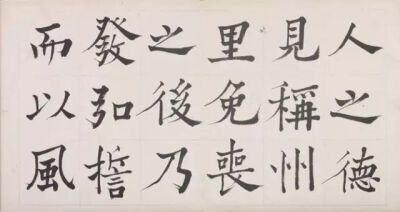 人之德
見稱州
里免喪
之後乃
發弘誓
而以風